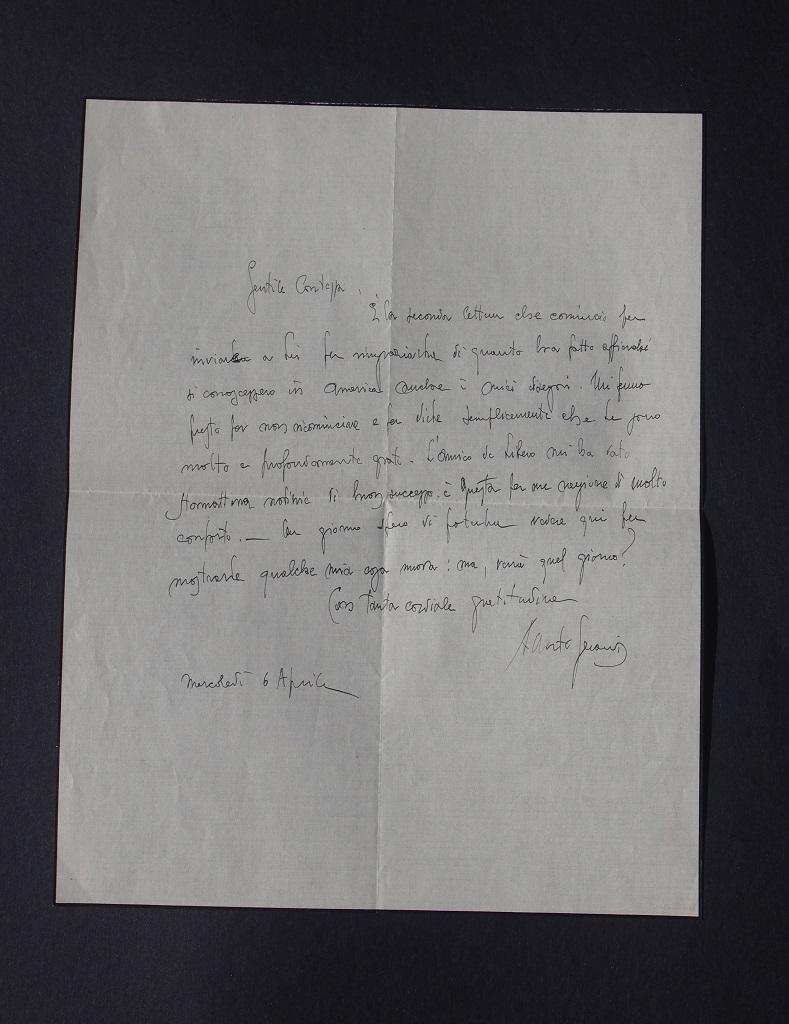 Gentile Contessa,
È la seconda lettera che comincio per
inviarla a Lei per ringraziarla di quanto ha fatto affinché
si conoscessero in America anche i miei disegni. Mi fermo
presto per non ricominciare e per dirle semplicemente che Le sono
molto e profondamente grato. L'amico de Libero mi ha dato
stamattina notizia di buon successo. È questa per me ragione di molto
conforto. — Un giorno spero di poterla vedere qui per
mostrarle qualche mia cosa nuova: ma, verrà quel giorno?
Con tanta cordiale gratitudine
Mercoledì 6 Aprile